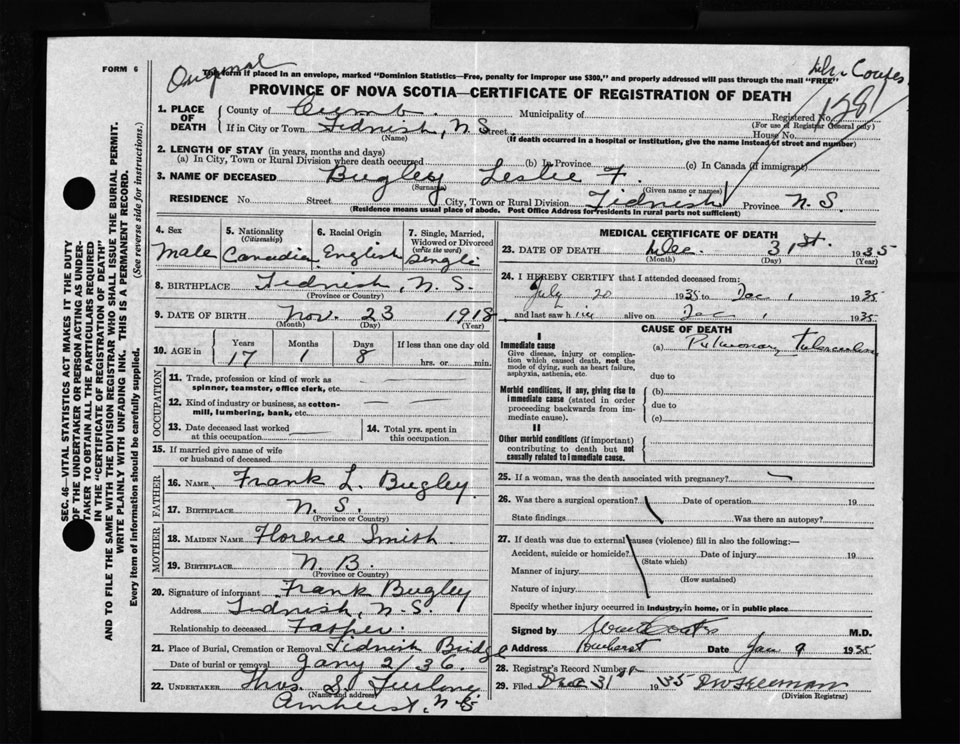 FORM 6
Original
John Coates
This form if placed in an envelope, marked "Dominion Statistics—Free, penalty for improper use $300," and properly addressed will pass through the mail "FREE"
PROVINCE OF NOVA SCOTIA—CERTIFICATE OF REGISTRATION OF DEATH
1. PLACE OF DEATH
County of Cumb. Municipality of Registered No. 128
(For use of Registrar General only)
If in City or Town Tidnish, N.S. Street House No.
(Name) (If death occurred in a hospital or institution, give the name instead of street and number)
2. LENGTH OF STAY (in years, months and days)
(a) In City, Town or Rural Division where death occurred (b) In Province (c) In Canada (if immigrant)
3. NAME OF DECEASED Bugley Leslie F.
(Surname) (Given name or names)
RESIDENCE No. Street City, Town or Rural Division Tidnish Province N.S.
(Residence means usual place of abode. Post Office Address for residents in rural parts not sufficient)
4. Sex
Male
5. Nationality
(Citizenship)
Canadian
6. Racial Origin
English
7. Single, Married, Widowed or Divorced
(write the word)
Single
8. BIRTHPLACE Tidnish, N.S.
(Province or Country)
9. DATE OF BIRTH Nov. 23 1918
(Month) (Day) (Year)
10. AGE in Years Months Days If less than one day old
17 1 8 hrs. or min.
OCCUPATION
11. Trade, profession or kind of work as
spinner, teamster, office clerk, etc.
12. Kind of industry or business, as cotton-
mill, lumbering, bank, etc.
13. Date deceased last worked
at this occupation
14. Total yrs. spent in
this occupation
15. If married give name of wife
or husband of deceased
FATHER
16. NAME Frank L. Bugley
17. BIRTHPLACE N.S.
(Province or Country)
MOTHER
18. MAIDEN NAME Florence Smith
19. BIRTHPLACE N.B.
(Province or Country)
20. Signature of informant Frank Bugley
Address Tidnish, N.S.
Relationship to deceased Father
21. Place of Burial, Cremation or Removal Tidnish Bridge
Date of burial or removal Jany 2/36.
22. UNDERTAKER Thos. S. Furlong
(Name and address)
Amherst, N.S.
MEDICAL CERTIFICATE OF DEATH
23. DATE OF DEATH Dec. 31st. 1935
(Month) (Day) (Year)
24. I HEREBY CERTIFY that I attended deceased from:
July 20 1935 to Dec 1 1935
and last saw him alive on Dec 1 1935
CAUSE OF DEATH
I
Immediate cause
Give disease, injury or complica-
tion which caused death, not the
mode of dying, such as heart failure,
asphyxia, asthenia, etc.
(a) Pulmonary Tuberculosis
due to
Morbid conditions, if any, giving rise to
immediate cause (stated in order
proceeding backwards from im-
mediate cause).
(b)
due to
(c)
II
Other morbid conditions (if important)
contributing to death but not
causally related to immediate cause.
25. If a woman, was the death associated with pregnancy?
26. Was there a surgical operation? Date of operation 19
State findings Was there an autopsy?
27. If death was due to external causes (violence) fill in also the following:—
Accident, suicide or homicide? Date of injury 19
(State which)
Manner of injury
(How sustained)
Nature of injury
Specify whether injury occurred in industry, in home, or in public place
Signed by Coates M.D.
Address Amherst Date Jan 9 1935
28. Registrar's Record Number
29. Filed Dec 31st 1935
(Division Registrar)
SEC. 46—VITAL STATISTICS ACT MAKES IT THE DUTY
OF THE UNDERTAKER OR PERSON ACTING AS UNDER-
TAKER TO OBTAIN ALL THE PARTICULARS REQUIRED
IN THE "CERTIFICATE OF REGISTRATION OF DEATH"
AND TO FILE THE SAME WITH THE DIVISION REGISTRAR WHO SHALL ISSUE THE BURIAL PERMIT.
WRITE PLAINLY WITH UNFADING INK. THIS IS A PERMANENT RECORD.
Every item of information should be carefully supplied. (See reverse side for instructions.)